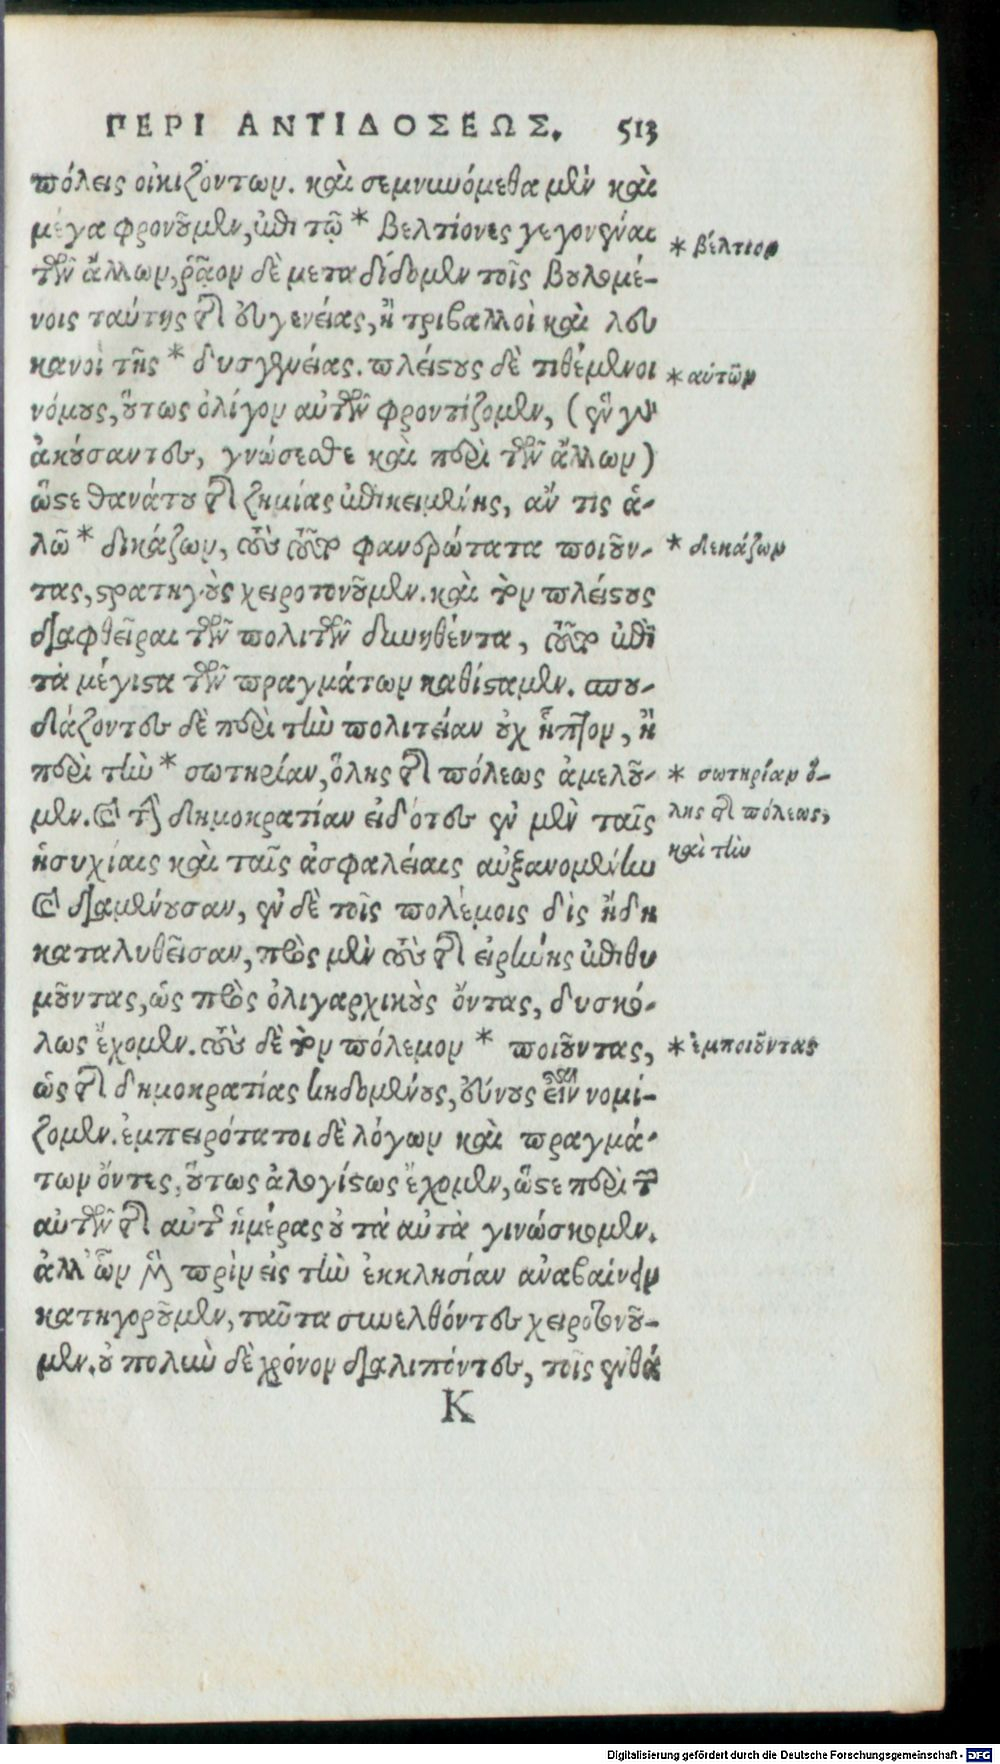 ΠΕΡΙ ΑΝΤΙΔΟΣΕΩΣ. 513
πόλεις οἰκιζόντων. καὶ σεμνυνόμεθα μὲν καὶ
μέγα φρονοῦμεν, ἐπὶ τῷ * βελτίονες γεγονέναι
* βέλτιον
τῶν ἄλλων, ῥᾷον δὲ μεταδίδομεν τοῖς βουλομέ-
νοις ταύτης τῆς εὐγενείας, ἢ τριβαλλοὶ καὶ λευ
κανοὶ τῆς * δυσγενείας. πλείστους δὲ τιθέμενοι
* αὑτῶν
νόμους, οὕτως ὀλίγον αὐτῶν φροντίζομεν, (ἓν γὰρ
ἀκούσαντες, γνώσεσθε καὶ περὶ τῶν ἄλλων)
ὥστε θανάτου τῆς ζημίας ἐπικειμένης, ἄν τις ἁ-
λῷ * δικάζων, τοὺς τοῦτο φανερώτατα ποιοῦν-
* δεκάζων
τας, στρατηγοὺς χειροτονοῦμεν. καὶ τὸν πλείστους
διαφθεῖραι τῶν πολιτῶν δυνηθέντα, τοῦτον ἐπὶ
τὰ μέγιστα τῶν πραγμάτων καθίσταμεν. σπου-
δάζοντες δὲ περὶ τὴν πολιτείαν οὐχ ἧττον, ἢ
περὶ τὴν * σωτηρίαν, ὅλης τῆς πόλεως ἀμελοῦ-
* σωτηρίαν ὅ-
λης τῆς πόλεως,
καὶ τὴν
μεν. καὶ τὴν δημοκρατίαν εἰδότες ἐν μὲν ταῖς
ἡσυχίαις καὶ ταῖς ἀσφαλείαις αὐξανομένην
καὶ διαμένουσαν, ἐν δὲ τοῖς πολέμοις δὶς ἤδη
καταλυθεῖσαν, πρὸς μὲν τοὺς τῆς εἰρήνης ἐπιθυ
μοῦντας, ὡς πρὸς ὀλιγαρχικοὺς ὄντας, δυσκό-
λως ἔχομεν. τοὺς δὲ τὸν πόλεμον * ποιοῦντας,
* ἐμποιοῦντας
ὡς τῆς δημοκρατίας κηδομένους, εὔνους εἶναι νομί-
ζομεν. ἐμπειρότατοι δὲ λόγων καὶ πραγμά-
των ὄντες, οὕτως ἀλογίστως ἔχομεν, ὥστε περὶ τῶν
αὐτῶν τῆς αὐτῆς ἡμέρας οὐ τὰ αὐτὰ γινώσκομεν.
ἀλλ' ὧν μὲν πρὶν εἰς τὴν ἐκκλησίαν ἀναβαίνειν
κατηγοροῦμεν, ταῦτα συνελθόντες χειροτονοῦ-
μεν. οὐ πολὺν δὲ χρόνον διαλιπόντες, τοῖς ἐνθά
K
Digitalisierung gefördert durch die Deutsche Forschungsgemeinschaft - DFG